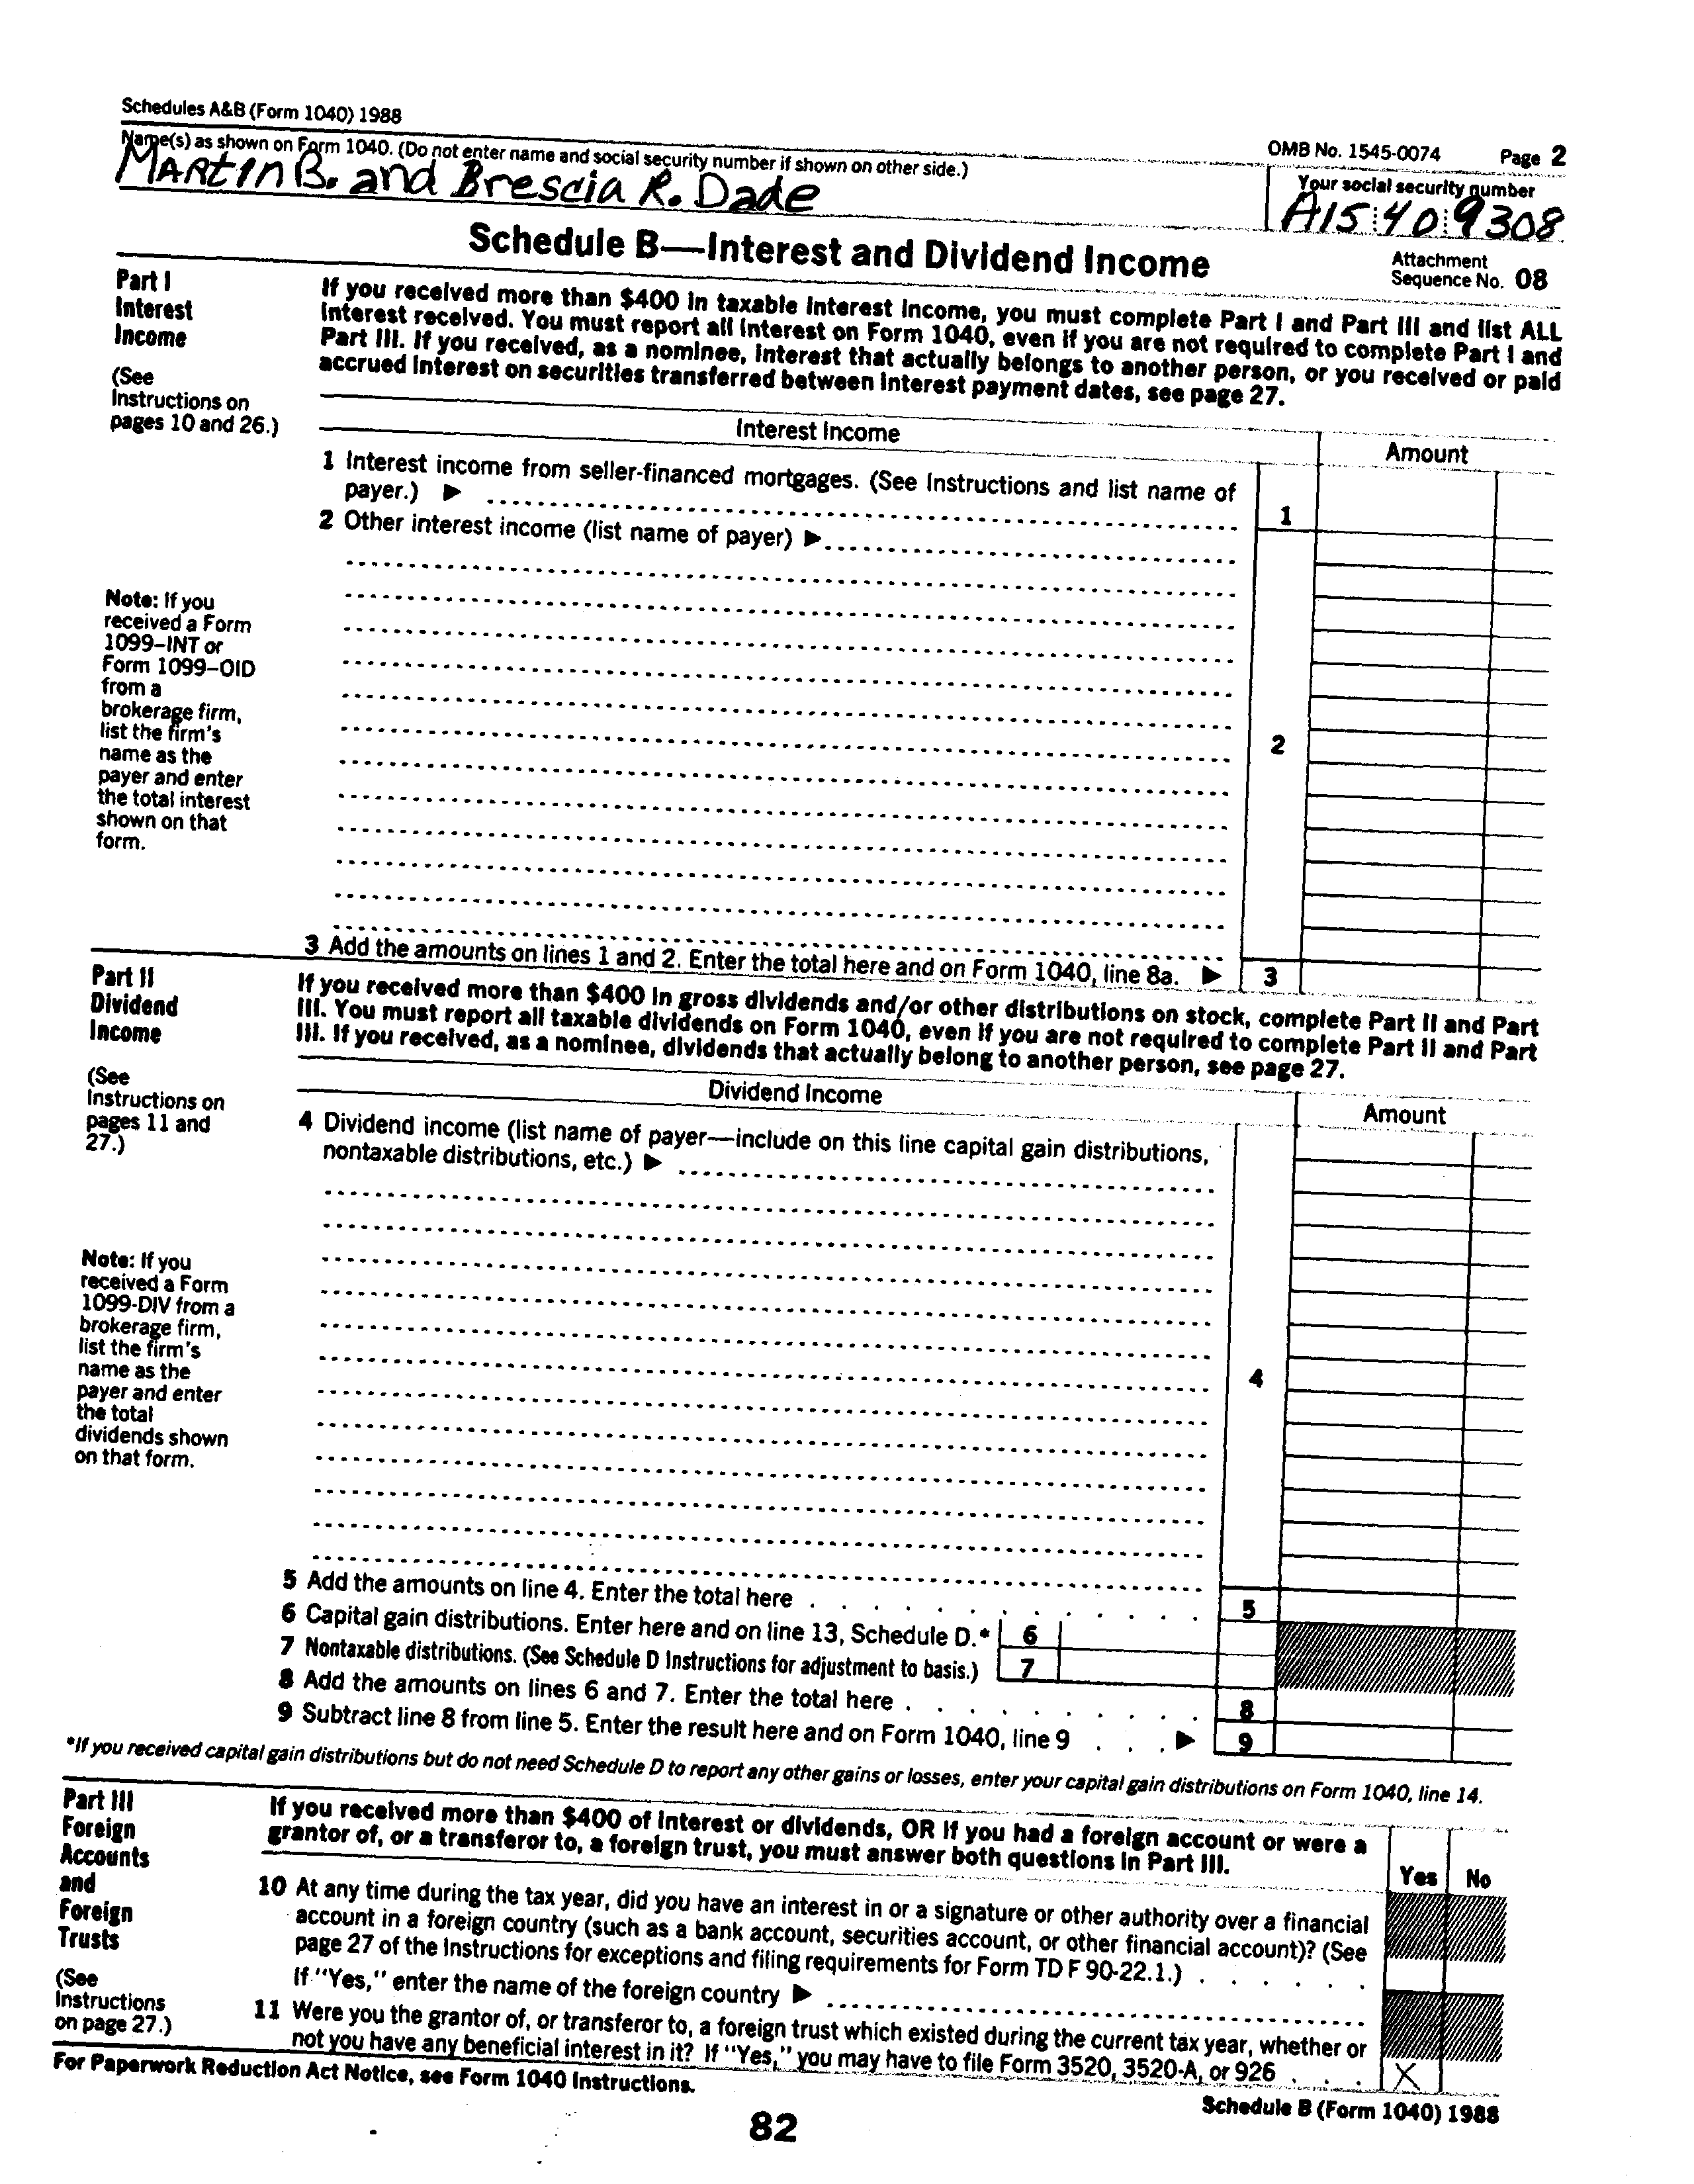 Schedules A&B (Form 1040) 1988
OMB No. 1545-0074 Page 2
Name(s) as shown on Form 1040. (Do not enter name and social security number if shown on other side.)
Your social security number
MARtIn B. and Brescia R. Dade
A15 40 9308
Schedule B—Interest and Dividend Income
Attachment
Sequence No. 08
Part I
Interest
Income
(See
Instructions on
pages 10 and 26.)
If you received more than $400 in taxable interest income, you must complete Part I and Part III and list ALL
interest received. You must report all interest on Form 1040, even if you are not required to complete Part I and
Part III. If you received, as a nominee, interest that actually belongs to another person, or you received or paid
accrued interest on securities transferred between interest payment dates, see page 27.
Interest Income
Amount
1 Interest income from seller-financed mortgages. (See Instructions and list name of
payer.) ▶
1
2 Other interest income (list name of payer) ▶
Note: If you
received a Form
1099–INT or
Form 1099–OID
from a
brokerage firm,
list the firm's
name as the
payer and enter
the total interest
shown on that
form.
2
3 Add the amounts on lines 1 and 2. Enter the total here and on Form 1040, line 8a. ▶ 3
Part II
Dividend
Income
(See
Instructions on
pages 11 and
27.)
If you received more than $400 in gross dividends and/or other distributions on stock, complete Part II and Part
III. You must report all taxable dividends on Form 1040, even if you are not required to complete Part II and Part
III. If you received, as a nominee, dividends that actually belong to another person, see page 27.
Dividend Income
Amount
4 Dividend income (list name of payer—include on this line capital gain distributions,
nontaxable distributions, etc.) ▶
Note: If you
received a Form
1099-DIV from a
brokerage firm,
list the firm's
name as the
payer and enter
the total
dividends shown
on that form.
4
5 Add the amounts on line 4. Enter the total here . . . . . . . . . . . . . 5
6 Capital gain distributions. Enter here and on line 13, Schedule D.* 6
7 Nontaxable distributions. (See Schedule D Instructions for adjustment to basis.) 7
8 Add the amounts on lines 6 and 7. Enter the total here . . . . . . . . . . 8
9 Subtract line 8 from line 5. Enter the result here and on Form 1040, line 9 . . . ▶ 9
*If you received capital gain distributions but do not need Schedule D to report any other gains or losses, enter your capital gain distributions on Form 1040, line 14.
Part III
Foreign
Accounts
and
Foreign
Trusts
(See
Instructions
on page 27.)
If you received more than $400 of interest or dividends, OR if you had a foreign account or were a
grantor of, or a transferor to, a foreign trust, you must answer both questions in Part III.
Yes No
10 At any time during the tax year, did you have an interest in or a signature or other authority over a financial
account in a foreign country (such as a bank account, securities account, or other financial account)? (See
page 27 of the Instructions for exceptions and filing requirements for Form TD F 90-22.1.) . . . . . .
If "Yes," enter the name of the foreign country ▶
11 Were you the grantor of, or transferor to, a foreign trust which existed during the current tax year, whether or
not you have any beneficial interest in it? If "Yes," you may have to file Form 3520, 3520-A, or 926 . . . X
For Paperwork Reduction Act Notice, see Form 1040 Instructions.
Schedule B (Form 1040) 1988
82